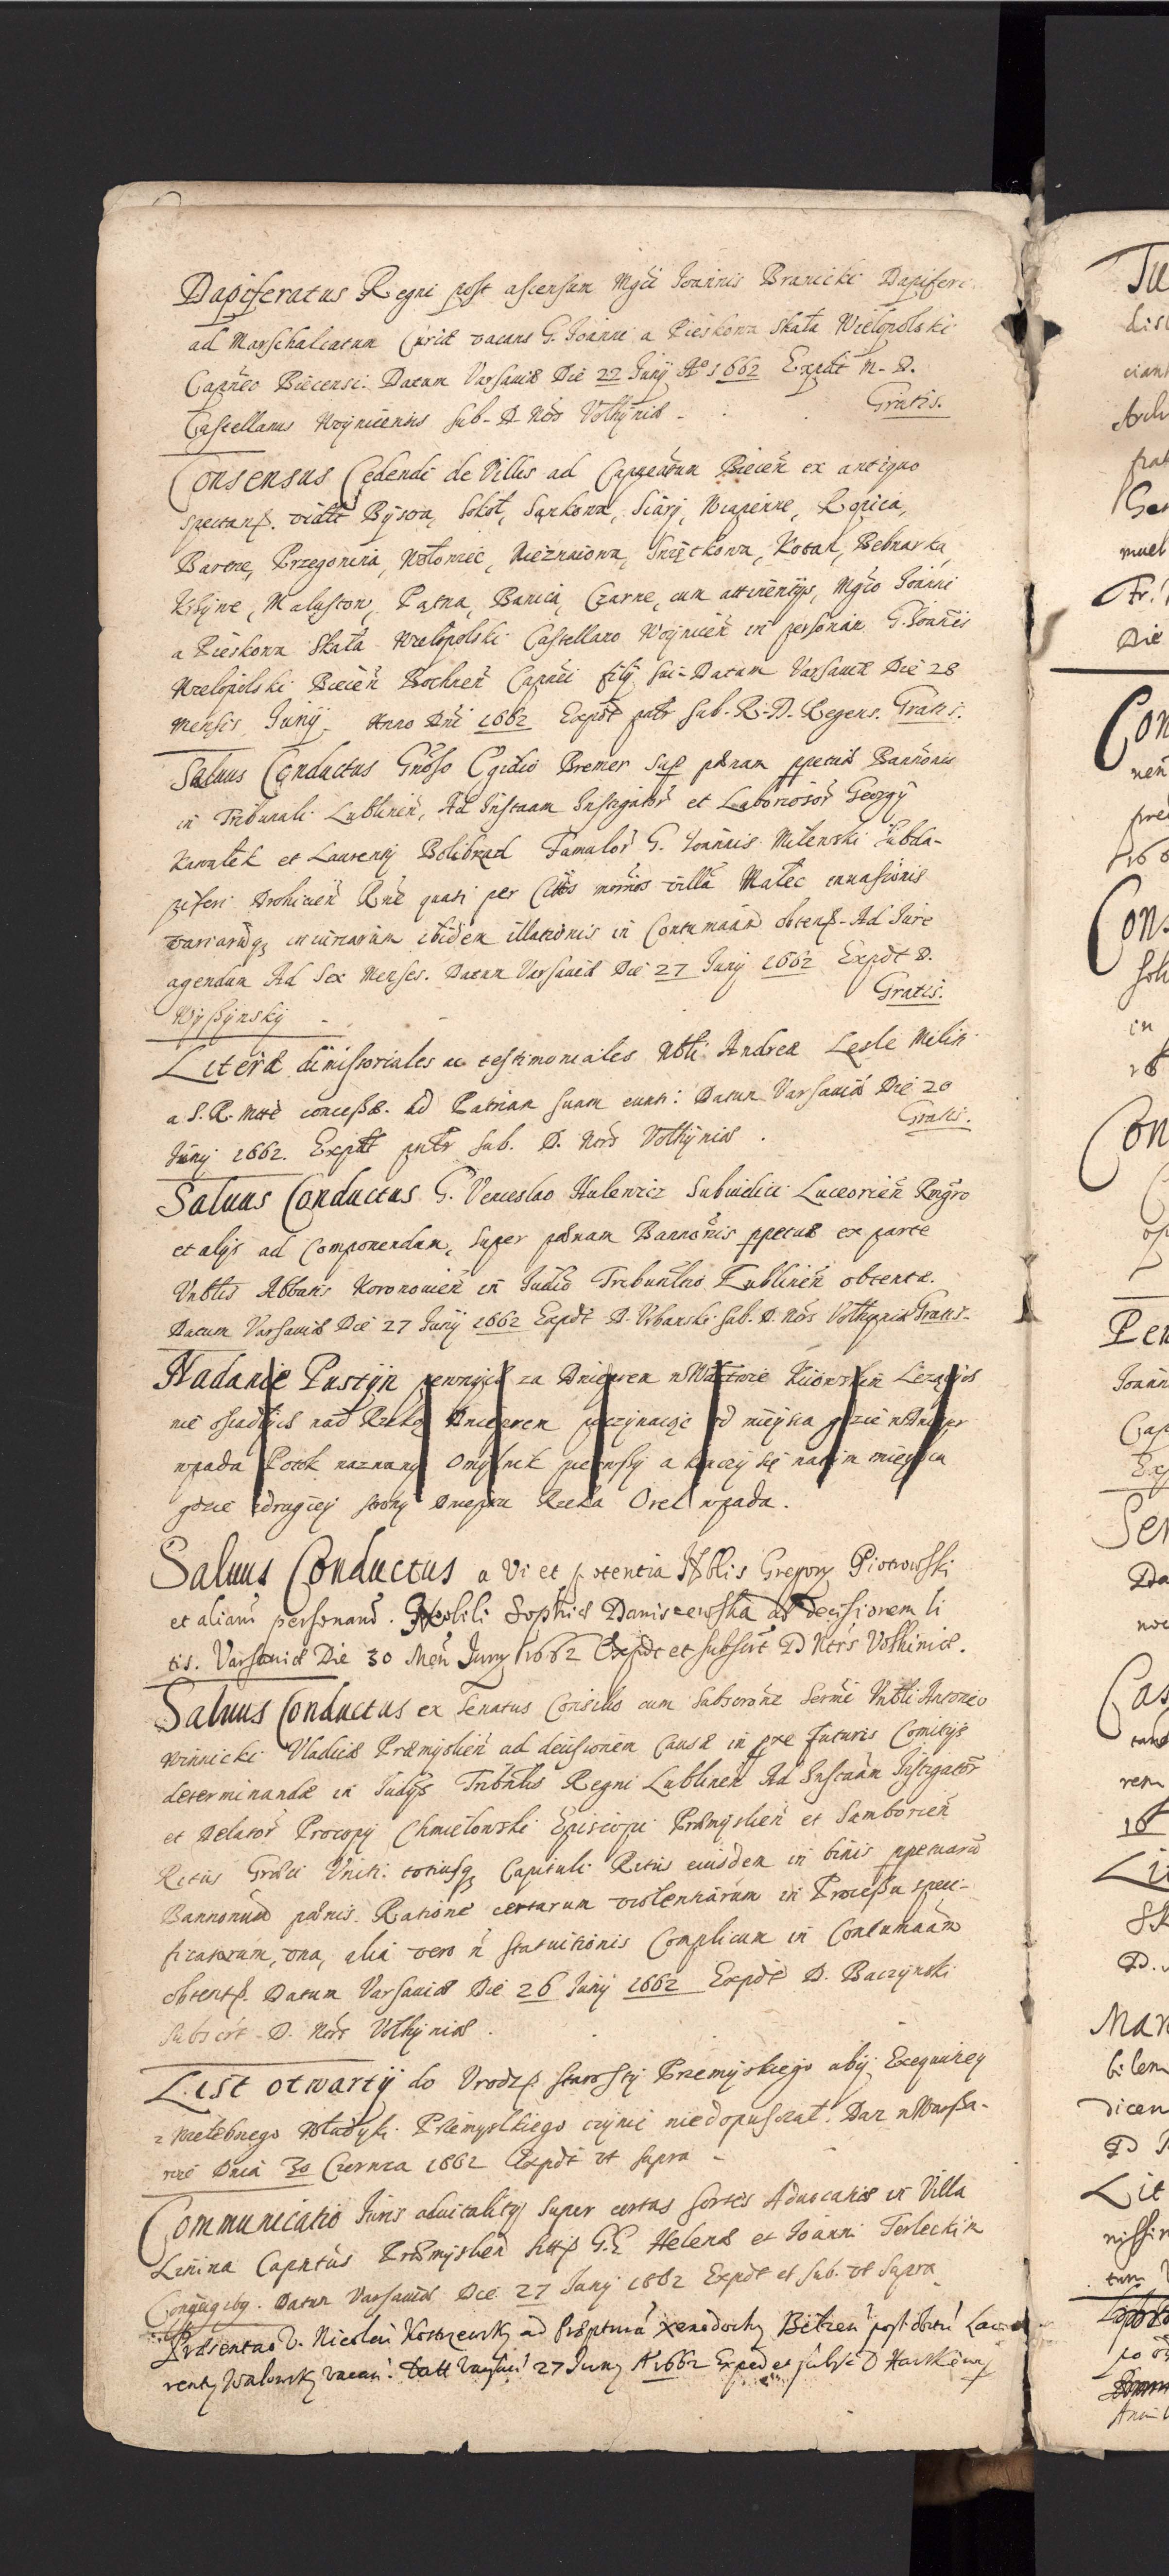 Dapiferatus Regni post ascensum Mgci Joannis Branicki Dapiferi
ad Marschalcatum Curiæ vacans G. Joanni a Pieskowa Skała Wielopolski
Capneo Biecensi. Datum Varsaviæ Die 22 Juny Ao 1662 Expdt M. D.
Castellanus Woynicensis Sub. D. Nôs Volhyniæ Gratis.
Consensus Cedendi de Villis ad Capneatum Biecen ex antiquo
spectanß. vidtt Bystra, Sokoł, Sękowa, Siary, Męcinne, Ropica,
Bartne, Przegonina, Wołowiec, Nieznaiowa, Swiętkowa, Kotan, Bednarka
Kłÿne, Malastow, Pętna, Banica, Czarne, cum attinentijs, Mgco Joanni
a Pieskowa Skała Wielopolski Castellano Woynicen in personam G. Joannis
Wielopolski Biecen Bochnen Capnei filij sui Datum Varsaviæ Die 28
Mensis Junij Anno Dni 1662 Expdt putr sub. R. D. Regens. Gratis.
Saluus Conductus Gnoso Egidio Bremer Sup pænam ppetuæ Bannonis
in Tribunali Lublinen, Ad Instaam Instigator et Laboriosor Georgij
Kawałek et Laurentij Bolibrzad Famulor G. Joannis Milewski Subda-
piferi Drohicien Rne quasi per Cittos mornos villa Malec inuasionis
variarumq iniuriarum ibidem illationis in Contumaam obtenß. Ad Jure
agendum Ad Sex Menses. Datum Varsaviæ Die 27 Juny 1662 Expdt D.
Wyßynsky Gratis.
Literæ dimissoriales ac testimoniales Nbli Andreæ Lesle Militi
a S. R. Mtte concessæ. ad Patriam suam eunti: Datum Varsaviæ Die 20
Juny 1662. Expdt putr Sub. D. Nôrs Volhyniæ. Gratis.
Saluus Conductus G. Venceslao Hulewicz Subiudici Luceorien Rmgro
et alijs ad Componendam, super pænam Bannonis ppetuæ ex parte
Vnblis Abbatis Koronouien in Judio Tribunltio Lublinen obtentæ.
Datum Varsaviæ Die 27 Juny 1662 Expdt D. Vrbanski Sub. D. Nôs Volhyniæ Gratis.
Nadanie Pustÿn pewnych za Dnieprem w Wactwie Kiiowskim Leżących
nie osiadłÿch nad Rzeką Dnieprem poczÿnaiąc od mieysca gdzie w Dniepr
wpada Potok nazwany Omylnik pierwszy a kończy się na tym mieyscu
gdzie z drugiey strony Dniepru Rzeka Orel wpada.
Saluus Conductus a Vi et potentia Nblis Gregory Piotrowski
et aliarum personarum. Nobili Sophiæ Daniszewska ad decisionem li
tis. Varsaviæ Die 30 Men Juny 1662 Expdt et subscrt D Ntrs Volhiniæ.
Saluus Conductus ex Senatus Consilio cum Subscrone Sermi Vnbli Antonio
Winnicki Vladicæ Præmyslien ad decisionem Causæ in pxe futuris Comitijs
determinandæ in Judijs Tribnlis Regni Lublinen Ad Instaam Instigator
et Delator Procopij Chmielowski Episcopi Præmyslien et Samborien
Ritus Græci Vniti. totiusq Capituli Ritus eiusdem in binis ppetuarum
Bannonum pænis. Ratione certarum violentiarum in Processu speci-
ficatarum, vna, alia vero n statuitionis Complicum in Contumaam
obtentß. Datum Varsaviæ Die 26 Juny 1662 Expdt D. Baczynski
Subscrt. D. Nôrs Volhyniæ.
List otwartÿ do Vrodzß Starosty Przemyskiego abÿ Exequutiey
z Wielebnego Władyki Przemyslkiego czynić niedopuszczał. Dan w Warsza-
wie Dnia 30 Czerwca 1662 Expdt vt supra
Communicatio Juris aduitalitij super certas sortes Aduocatiæ in Villa
Linina Capntus Præmyslien G.G. Helenæ et Joanni Terleckim
Coniugibq. Datum Varsaviæ Die 27 Juny 1662 Expdt et Sub. vt Supra
Præsentao V. Nicolai Kostrzewsky ad Præpturam Xenodochy Bełzen post obitum Lau-
renty Walewsky vacan. Datt Varsaui 27 Juny A 1662 Exped et subsc D